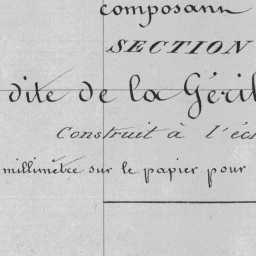 composant
SECTION
dite de la Géril
Construit à l'éch
millimètre sur le papier pour